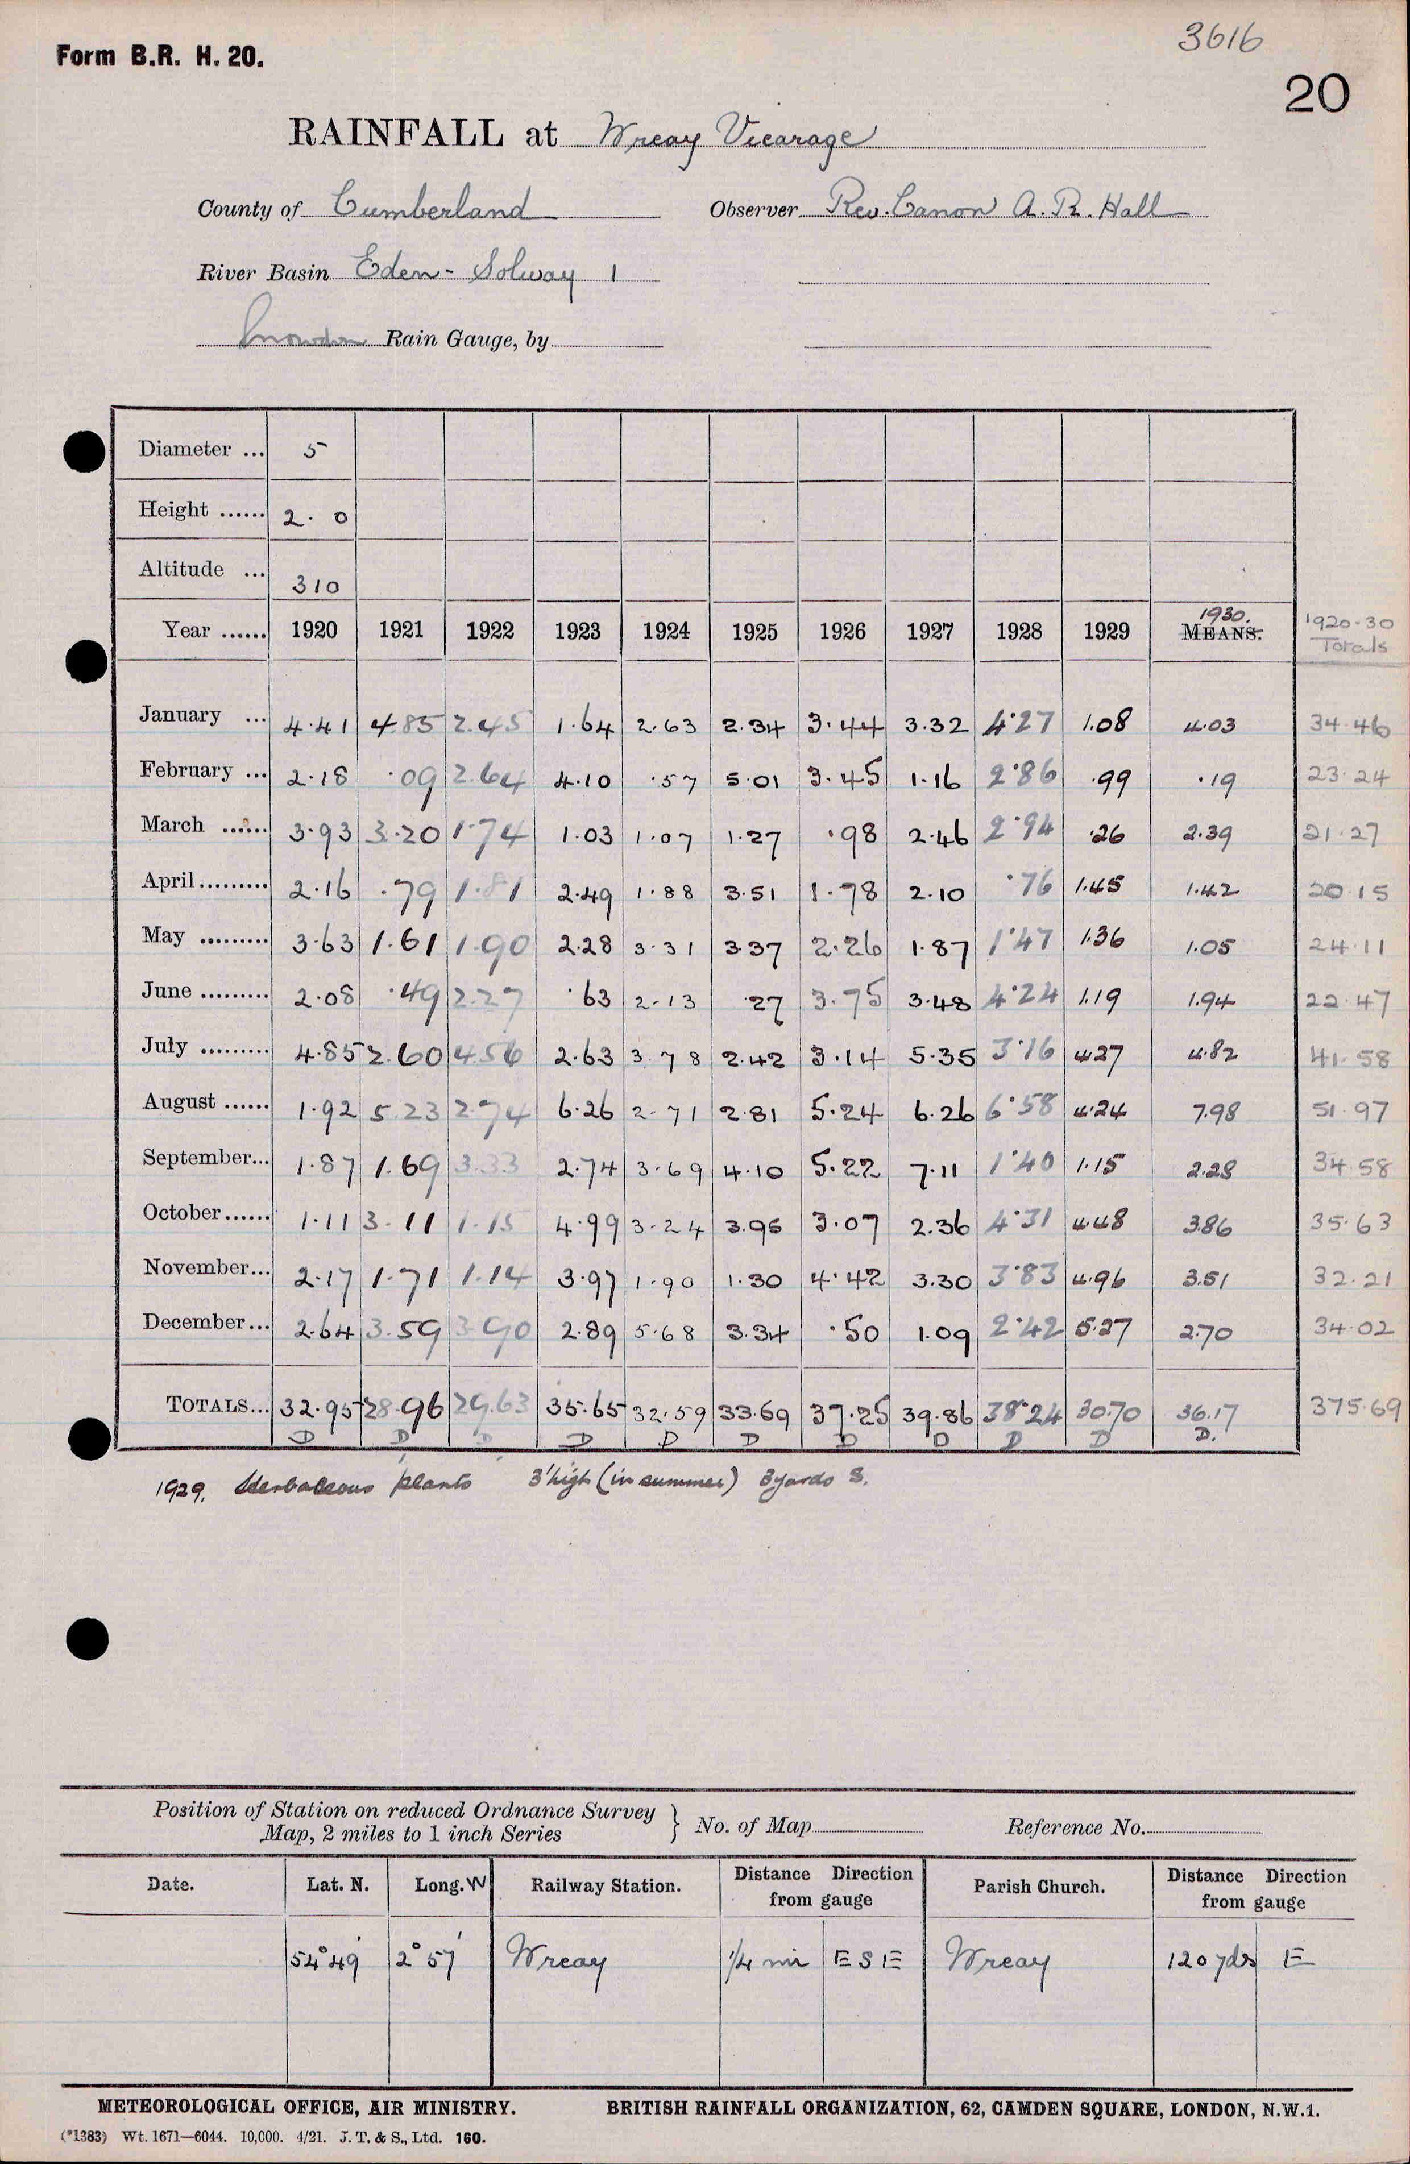 3616
Form B.R. H. 20.
20
RAINFALL at Wreay Vicarage
County of Cumberland Observer Rev. Canon A. R. Hall
River Basin Eden - Solway 1
Snowdon Rain Gauge, by
Diameter ... 5
Height ...... 2. 0
Altitude ... 310
Year ...... 1920 1921 1922 1923 1924 1925 1926 1927 1928 1929 MEANS. 1930. 1920-30 Totals
January ... 4.41 4.85 2.45 1.64 2.63 2.34 3.44 3.32 4.27 1.08 4.03 34.46
February ... 2.18 .09 2.64 4.10 .57 5.01 3.45 1.16 2.86 .99 .19 23.24
March ...... 3.93 3.20 1.74 1.03 1.07 1.27 .98 2.46 2.94 .26 2.39 21.27
April ......... 2.16 .79 1.81 2.49 1.88 3.51 1.78 2.10 .76 1.45 1.42 20.15
May ......... 3.63 1.61 1.90 2.28 3.31 3.37 2.26 1.87 1.47 1.36 1.05 24.11
June ......... 2.08 .49 2.27 .63 2.13 .27 3.75 3.48 4.24 1.19 1.94 22.47
July ......... 4.85 2.60 4.56 2.63 3.78 2.42 3.14 5.35 3.16 4.27 4.82 41.58
August ...... 1.92 5.23 2.74 6.26 2.71 2.81 5.24 6.26 6.58 4.24 7.98 51.97
September... 1.87 1.69 3.33 2.74 3.69 4.10 5.22 7.11 1.40 1.15 2.28 34.58
October...... 1.11 3.11 1.15 4.99 3.24 3.95 3.07 2.36 4.31 4.48 3.86 35.63
November... 2.17 1.71 1.14 3.97 1.90 1.30 4.42 3.30 3.83 4.96 3.51 32.21
December... 2.64 3.59 3.90 2.89 5.68 3.34 .50 1.09 2.42 5.27 2.70 34.02
TOTALS... 32.95 28.96 29.63 35.65 32.59 33.69 37.25 39.86 38.24 30.70 36.17 375.69
D D D D D D D D D D D.
1929. Herbaceous plants 3' high (in summer) 3 yards S.
Position of Station on reduced Ordnance Survey
Map, 2 miles to 1 inch Series } No. of Map Reference No.
Date. Lat. N. Long. W Railway Station. Distance Direction from gauge Parish Church. Distance Direction from gauge
54° 49' 2° 57' Wreay 1/4 mi ESE Wreay 120 yds E
METEOROLOGICAL OFFICE, AIR MINISTRY. BRITISH RAINFALL ORGANIZATION, 62, CAMDEN SQUARE, LONDON, N.W.1.
(*1383) Wt. 1671—6044. 10,000. 4/21. J. T. & S., Ltd. 160.